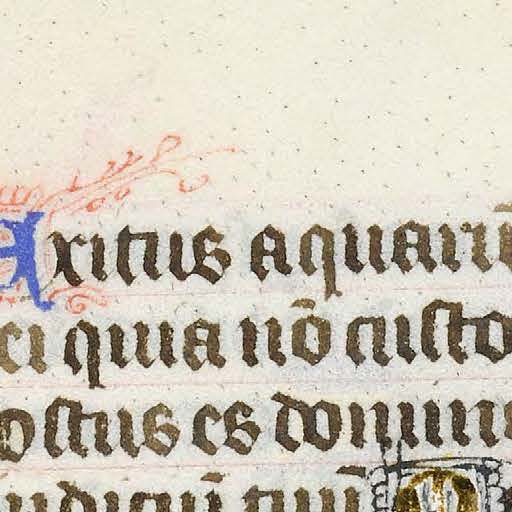 Axitus aquarū
ci quia nō custo
ostus es domine
udiciū tuū